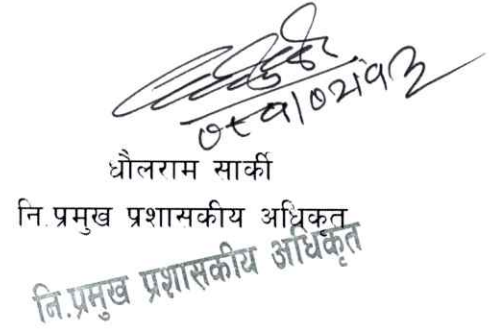 धौलराम सार्की
नि.प्रमुख प्रशासकीय अधिकृत
नि.प्रमुख प्रशासकीय अधिकृत